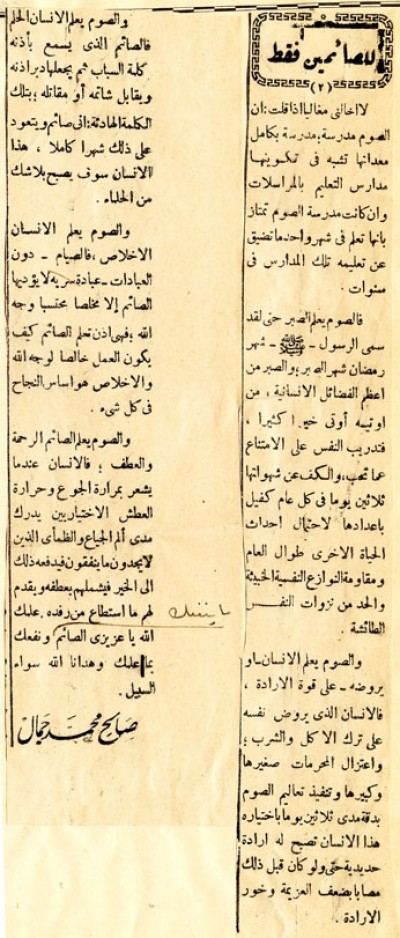 للصائمين فقط
(٢)
لا اخالني مغاليا اذا قلت: ان
الصوم مدرسة؛ مدرسة بكامل
معداتها تشبه فى تكوينها
مدارس التعليم بالمراسلات
وان كانت مدرسة الصوم تمتاز
بانها تعلم فى شهر واحد ما تضيق
عن تعليمه تلك المدارس فى
سنوات .
فالصوم يعلم الصبر حتى لقد
سمى الرسول - ﷺ - شهر
رمضان شهر الصبر؛ والصبر من
اعظم الفضائل الانسانية ، من
اوتيه أوتى خيرا كثيرا ،
فتدريب النفس على الامتناع
عما تحب، والكف عن شهواتها
ثلاثين يوما فى كل عام كفيل
باعدادها لاحتمال احداث
الحياة الاخرى طوال العام
ومقاومة النوازع النفسية الخبيثة
والحد من نزوات النفس
الطائشة .
والصوم يعلم الانسان - او
يروضه - على قوة الارادة ،
فالانسان الذى يروض نفسه
على ترك الاكل والشرب ؛
واعتزال المحرمات صغيرها
وكبيرها وتنفيذ تعاليم الصوم
بدقة مدى ثلاثين يوما باختياره
هذا الانسان تصبح له ارادة
حديدية حتى ولو كان قبل ذلك
مصابا بضعف العزيمة وخور
الارادة .
والصوم يعلم الانسان الحلم
فالصائم الذى يسمع بأذنه
كلمة السباب ثم يجعلها دبر اذنه
ويقابل شاتمه أو مقاتله ؛ بتلك
الكلمة الهادئة: انى صائم ويتعود
على ذلك شهرا كاملا ، هذا
الانسان سوف يصبح بلا شك
من الحلماء .
والصوم يعلم الانسان
الاخلاص ، فالصيام - دون
العبادات - عبادة سرية لا يؤديها
الصائم إلا مخلصا محتسبا وجه
الله ؛ فهى اذن تعلم الصائم كيف
يكون العمل خالصا لوجه الله
والاخلاص هو اساس النجاح
فى كل شىء .
والصوم يعلم الصائم الرحمة
والعطف ؛ فالانسان عندما
يشعر بمرارة الجوع وحرارة
العطش الاختياريين يدرك
مدى ألم الجياع والظمأى الذين
لا يجدون ما ينفقون فيدفعه ذلك
الى الخير فيشملهم بعطفه ويقدم
لهم ما استطاع من رفده. علمك
الله يا عزيزى الصائم ونفعك
بما علمك وهدانا الله سواء
السبيل .
صالح محمد جمال